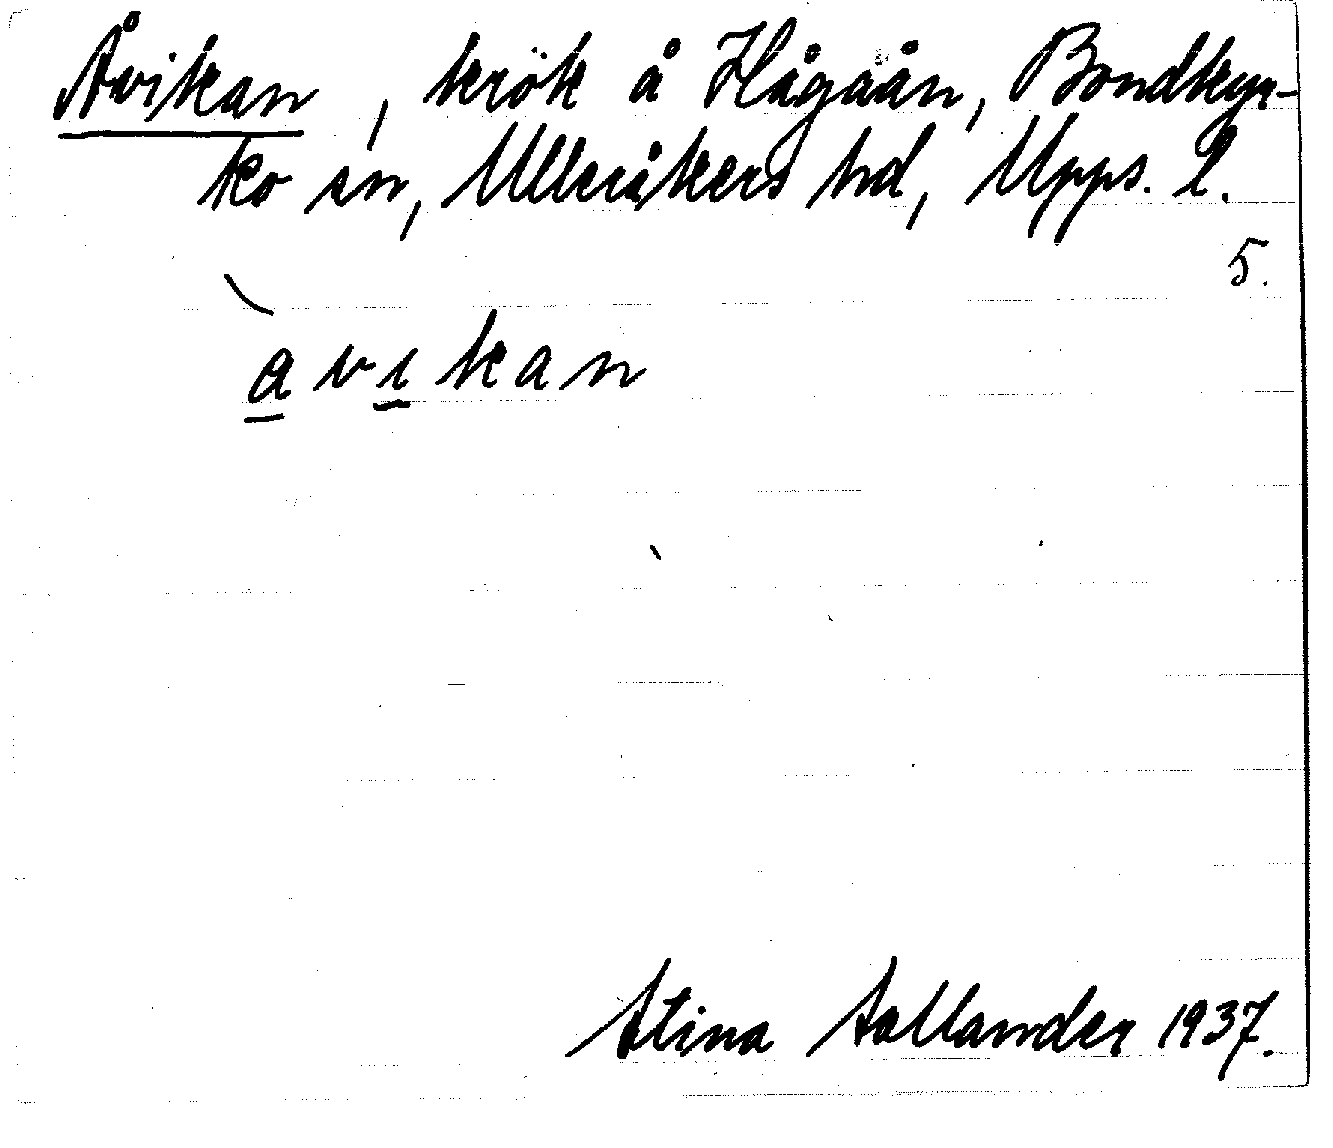 Åvikan, krök å Hågaån, Bondkyr-
ko sn, Ulleråkers hd, Upps. l.
5.
a̲ v i̲ k a n
Stina 1937.